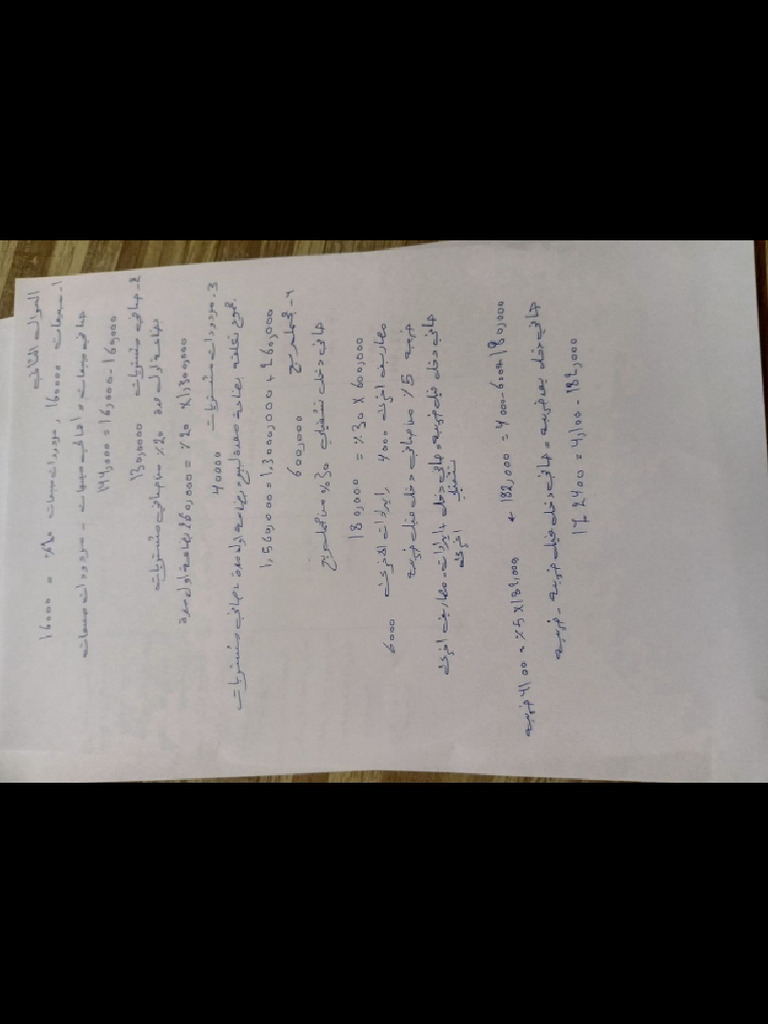 السؤال الثاني
1- مبيعات 160000 ، مردودات مبيعات %10 = 16000
صافي مبيعات = اجمالي مبيعات - مردودات مبيعات
144,000 = 16,000 - 160,000
2- صافي مشتريات 1300000
بضاعة اول مدة %20 من صافي مشتريات
1,300,000 x %20 = 260,000 بضاعة اول مدة
3- مردودات مشتريات 40000
مجموع تكلفة بضاعة معدة لبيع = بضاعة اول مدة + صافي مشتريات
1,560,000 = 1,3000,000 + 260,000
4- مجمل ربح 600,000
صافي دخل تشغيلي %30 من مجمل ربح
180,000 = %30 x 600,000
مصاريف اخرى 4000 ايرادات اخرى 6000
ضريبة %5 من صافي دخل قبل ضريبة
صافي دخل قبل ضريبة = صافي دخل تشغيلي + ايرادات اخرى - مصاريف اخرى
182,000 = 4000 - 6000 + 180,000
%5 x 182,000 = 9100 ضريبة
صافي دخل بعد ضريبة = صافي دخل قبل ضريبة - ضريبة
= 9,100 - 182,000